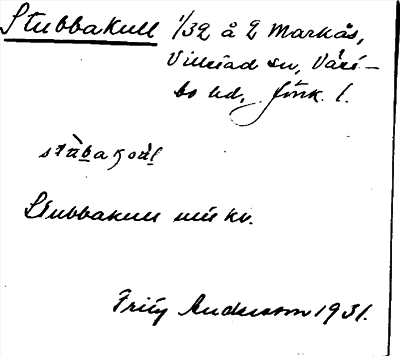 Stubbakull 1/32 å 2 Markås,
Villstad sn, Väst-
bo hd, Jönk. l.
stùbakoul
Stubbakull
Andersson 1931.